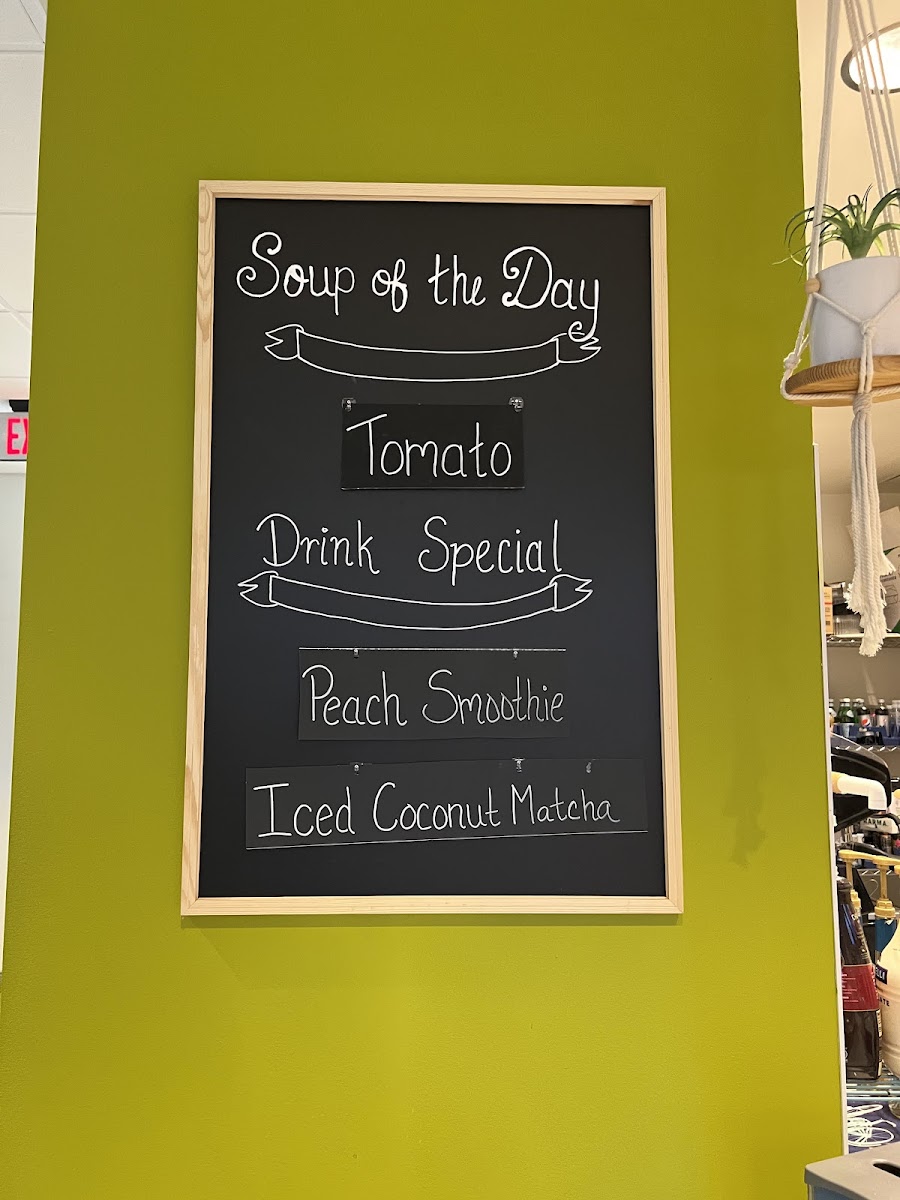 Soup of the Day
Tomato
Drink Special
Peach Smoothie
Iced Coconut Matcha
EX